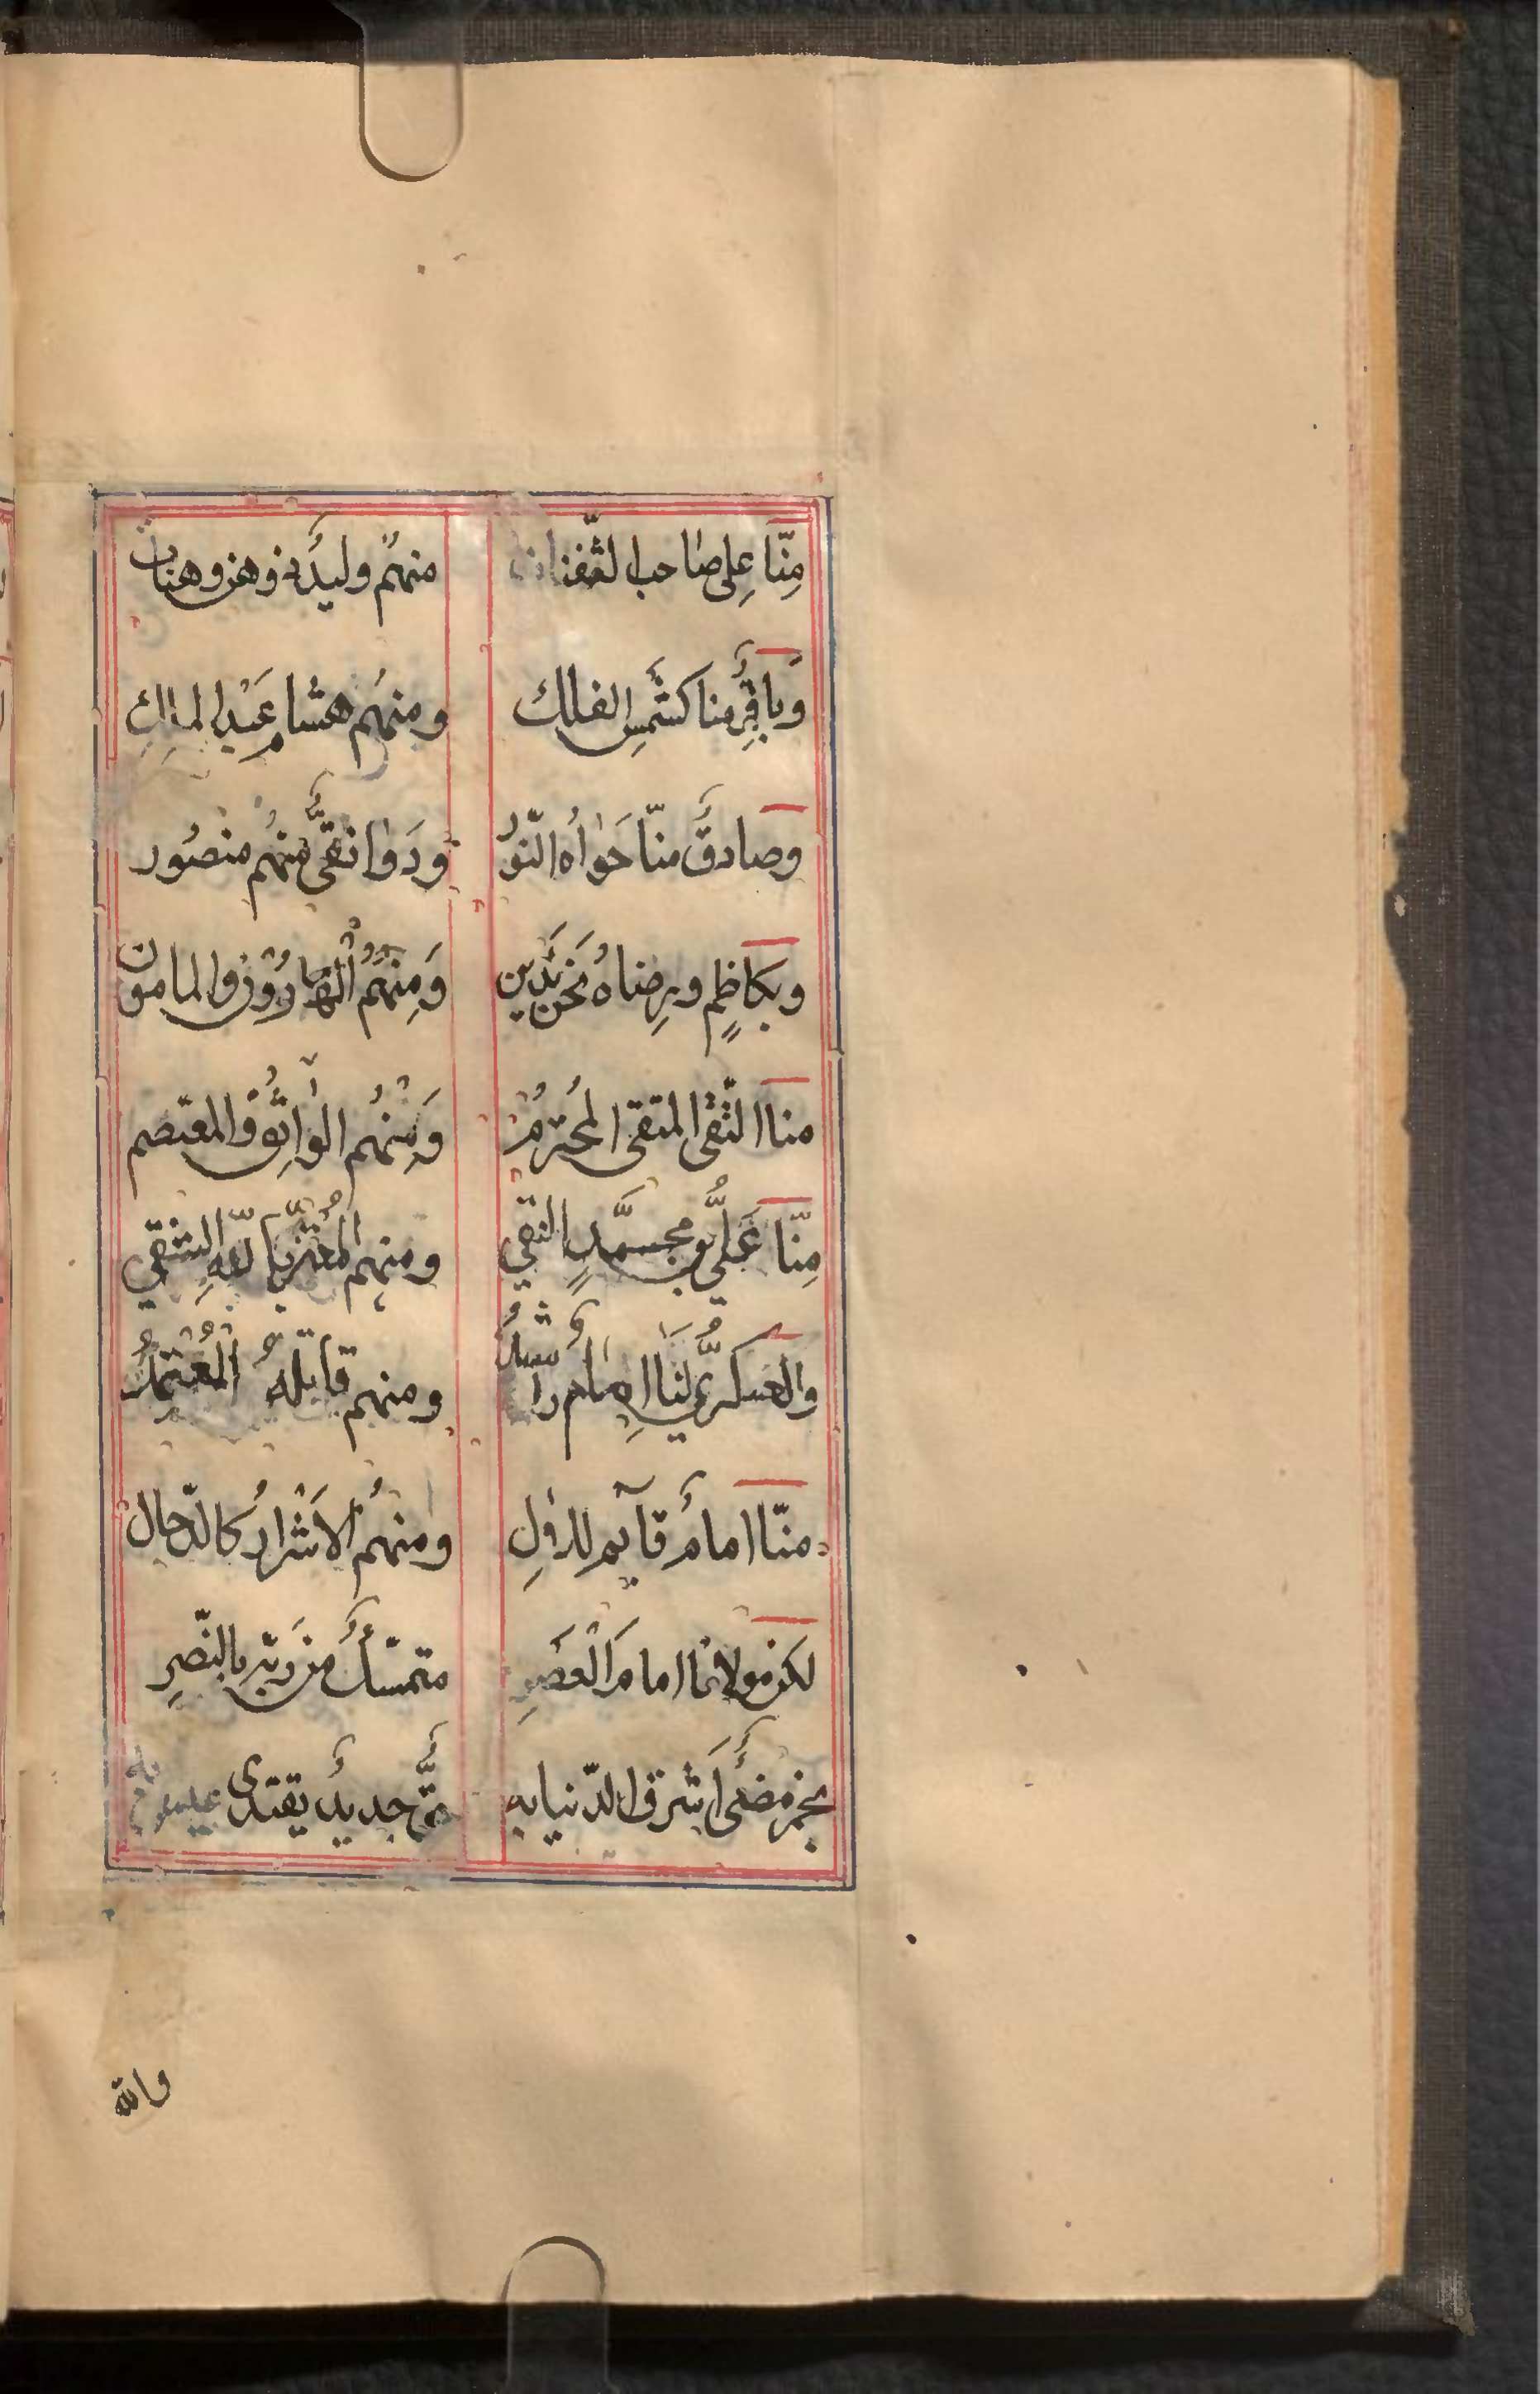 مِنّا عِلی صاحب الثّفنات منهُم ولیدٌ ذو هنٍ وهنات
وَباقِرٌ منا كشَمسِ الفلك ومنهُم هشام عَبْد الملكِ
وصادقٌ منّا حَواٰه النّورُ ودَوانقیٌّ منهُم منصُور
وبكاظِمٍ وبرِضاهُ نَحن نَدین وَمِنهُمُ الْهارُوْنُ والمامون
منا التّقی المتقی المُحترمُ وَمِنهُم الوٰاثِقُ والمعتصم
مِنّا عَلیُّ بن محمَّدٍ النقي ومنهم المُعْتزّ باللّهِ الشقي
والعسكریُّ لنَا اِمامٌ راشدٌ ومنهم قاتلهُ المُعْتَمدُ
منّا امامٌ قآیم للدولِ ومنهُم الاَشْرارُ كالدّجال
لكن مولانا امامَ الْعَصْرِ متمسّكٌ من ربّه بالنّصرِ
نجم مضیٌٔ اَشرق الدّنیا به جدیدٌ یقتدی
والله